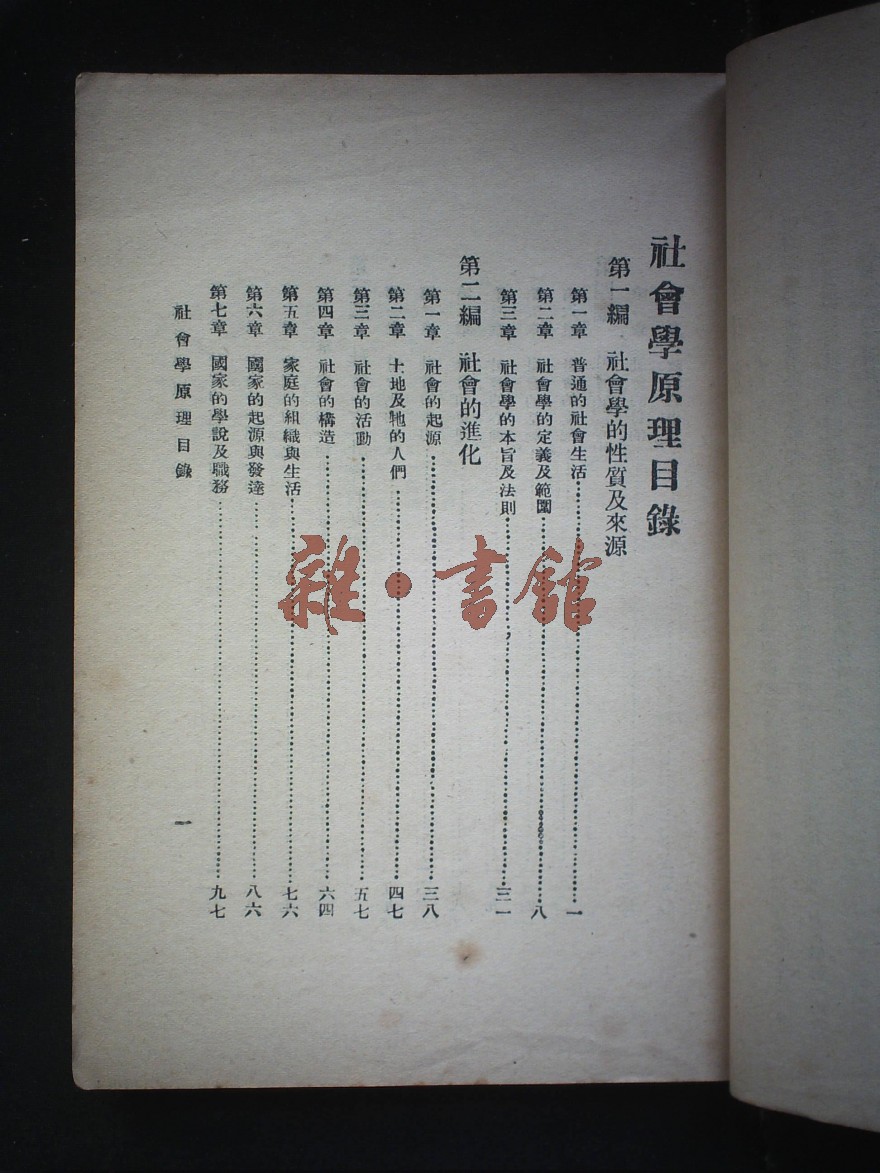 社會學原理目錄
第一編 社會學的性質及來源
第一章 普通的社會生活……一
第二章 社會學的定義及範圍……八
第三章 社會學的本旨及法則……三一
第二編 社會的進化
第一章 社會的起源……三八
第二章 土地及牠的人們……四七
第三章 社會的活動……五七
第四章 社會的構造……六四
第五章 家庭的組織與生活……七六
第六章 國家的起源與發達……八六
第七章 國家的學說及職務……九七
社會學原理目錄 一
雜·書館